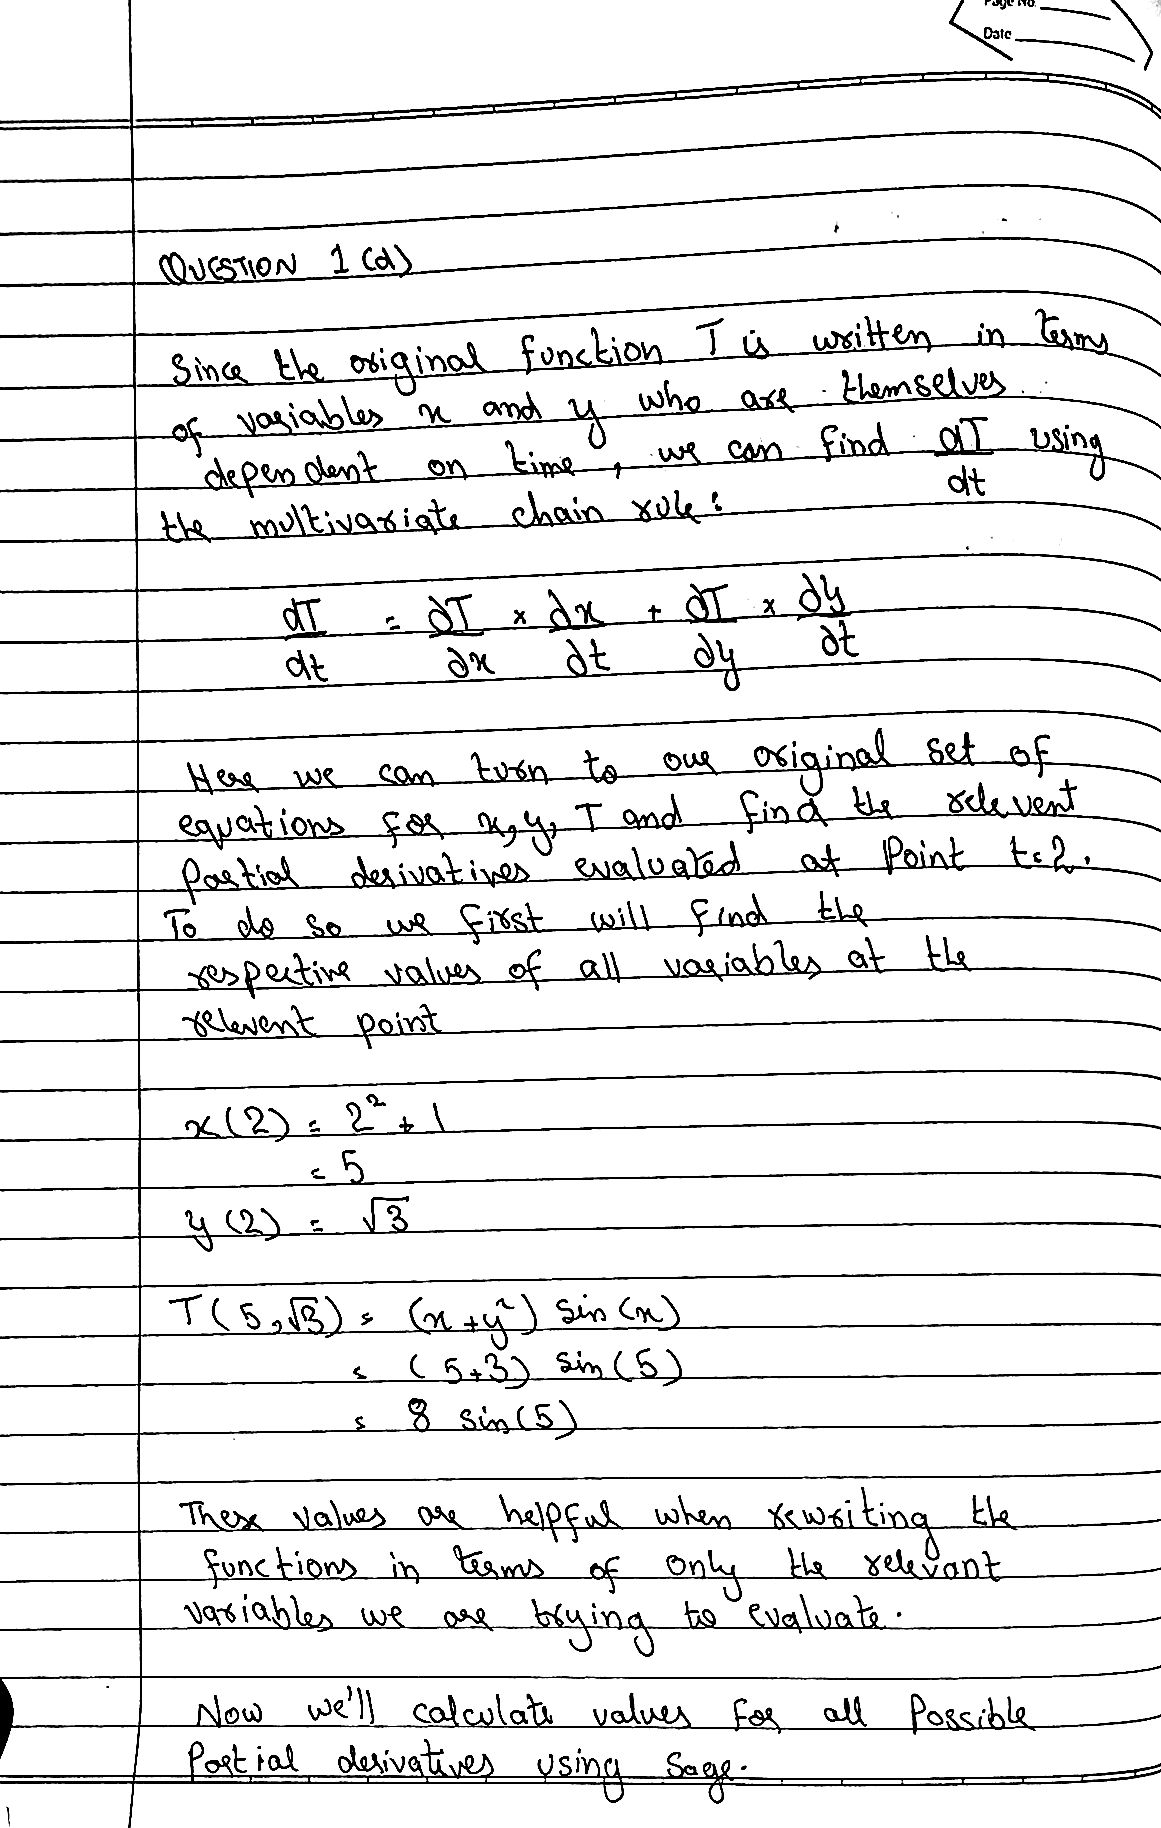 Page No.
Date
QUESTION 1 (d)
Since the original function T is written in terms
of variables x and y who are themselves
dependent on time, we can find dT/dt using
the multivariate chain rule:
dT/dt = ∂T/∂x × ∂x/∂t + ∂T/∂y × ∂y/∂t
Here we can turn to our original set of
equations for x, y, T and find the relevent
Partial derivatives evaluated at Point t=2.
To do so we first will find the
respective values of all variables at the
relevent point
x(2) = 2² + 1
= 5
y(2) = √3
T(5,√3) = (x+y²) sin(x)
= (5+3) sin(5)
= 8 sin(5)
These values are helpful when rewriting the
functions in terms of only the relevant
variables we are trying to evaluate.
Now we'll calculate values for all Possible
Partial derivatives using Sage.